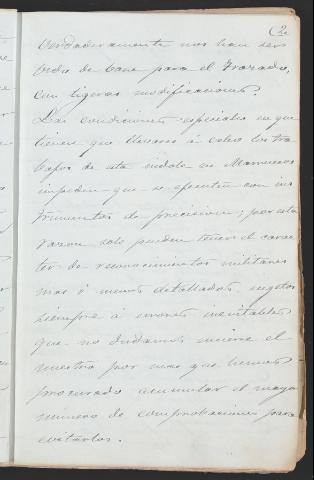 2
verdaderamente nos han ser
vido de base para el trazado,
con ligeras modificaciones.
Las condiciones especiales en que
tienen que llevarse á cabo los tra
bajos de esta índole en Marruecos
impiden que se ejecuten con ins
trumentos de precision; por esta
razon solo pueden tener el carac
ter de reconocimientos militares
mas ó menos detallados, sugetos
siempre á errores inevitables
que no dudamos encierre el
nuestro por mas que hemos
procurado acumular el mayor
número de comprobaciones para
evitarlos.